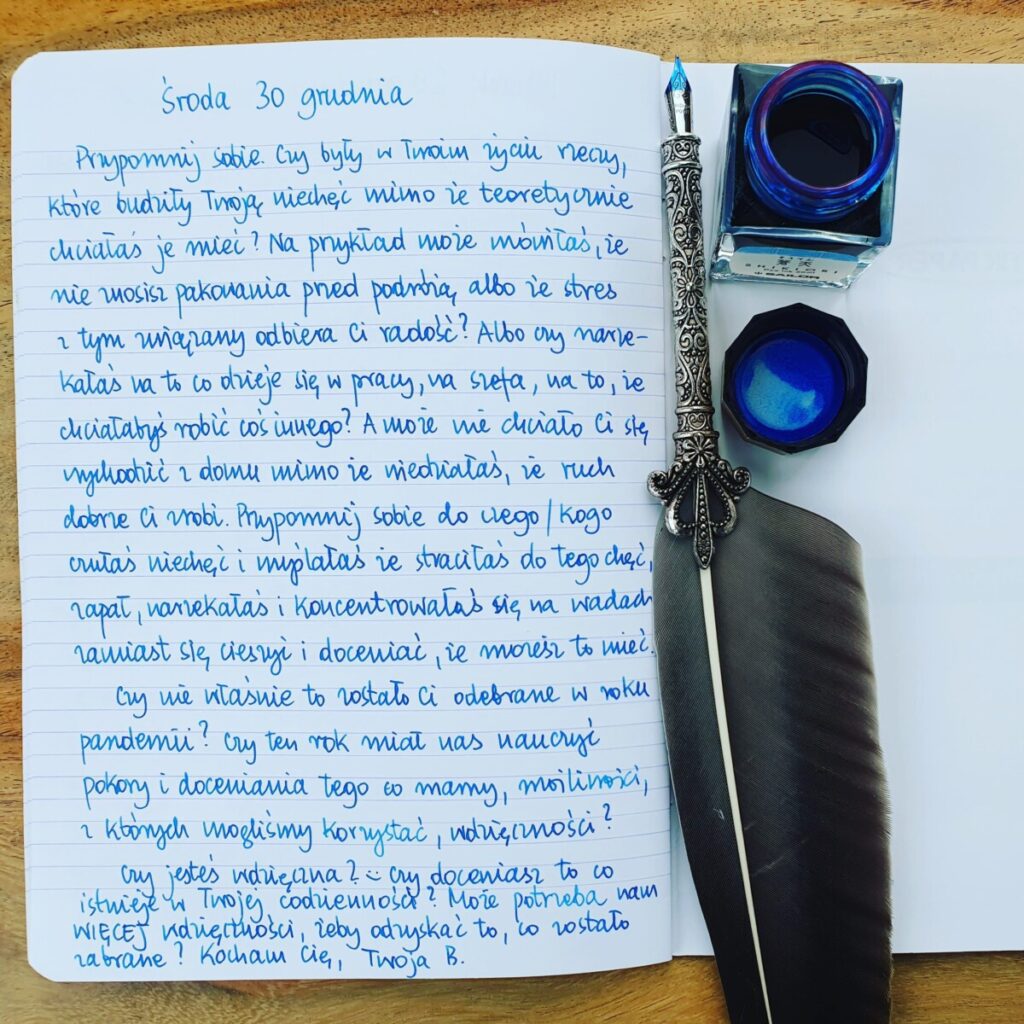 Środa 30 grudnia
Przypomnij sobie. Czy były w Twoim życiu rzeczy,
które budziły Twoją niechęć mimo że teoretycznie
chciałaś je mieć? Na przykład może mówiłaś, że
nie znosisz pakowania przed podróżą, albo że stres
z tym związany odbiera Ci radość? Albo czy narze-
kałaś na to co dzieje się w pracy, na szefa, na to, że
chciałabyś robić coś innego? A może nie chciało Ci się
wychodzić z domu mimo że wiedziałaś, że ruch
dobrze Ci zrobi. Przypomnij sobie do czego/kogo
czułaś niechęć i myślałaś że straciłaś do tego chęć,
zapał, narzekałaś i koncentrowałaś się na wadach
zamiast się cieszyć i doceniać, że możesz to mieć.
Czy nie właśnie to zostało Ci odebrane w roku
pandemii? Czy ten rok miał nas nauczyć
pokory i doceniania tego co mamy, możliwości,
z których mogliśmy korzystać, wdzięczności?
Czy jesteś wdzięczna? Czy doceniasz to co
istnieje w Twojej codzienności? Może potrzeba nam
WIĘCEJ wdzięczności, żeby odzyskać to, co zostało
zabrane? Kocham Cię, Twoja B.
SHIKIORI
SAILOR